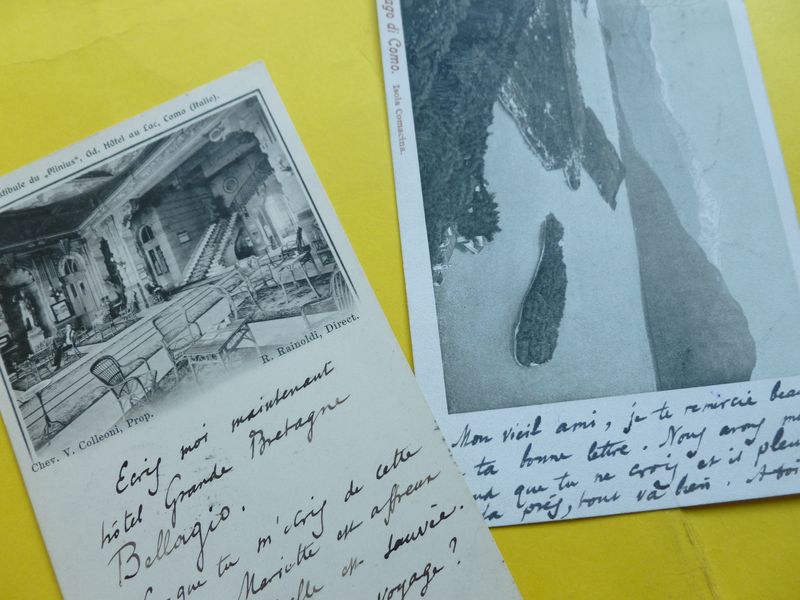 tibule du „Plinius", Gd. Hôtel au Lac, Como (Italie).
Chev. V. Colleoni, Prop.
R. Rainoldi, Direct.
Ecris moi maintenant
hôtel Grande Bretagne
Bellagio.
que tu m'écris de cette
Mariette est affreux
elle est sauvée.
voyage?
ago di Como.
Isola Comacina.
Mon vieil ami, je te remercie beau
ta bonne lettre. Nous avons
que tu ne crois et il pleu
près, tout va bien. A toi